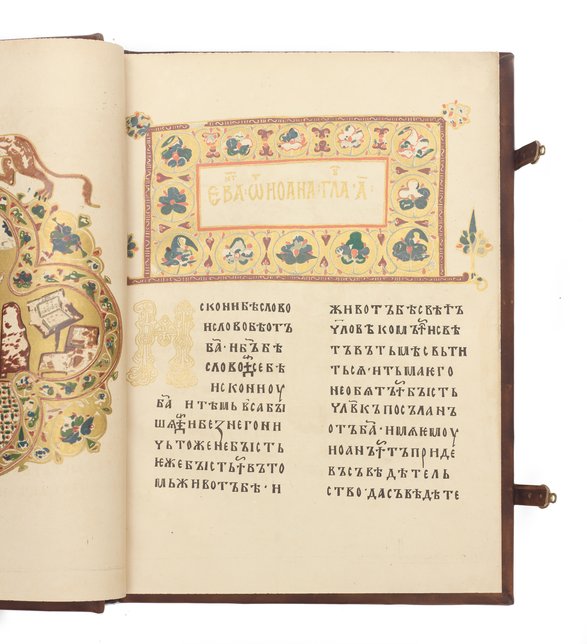 ЕВА҃ · ѾИОАНА · ГЛА҃ · А҃ ·
ИСКОНИБѢСЛОВО
ИСЛОВОБѢОТЪ
БА҃ · ИБ҃ЪБѢ
СЛОВО · СЕБѢ
ИСКОНИОУ
БА҃ ИТѢМЬВСАБЫ
ШѦ · ИБЕЗНЕГОНИ
ЧЬТОЖЕНЕБЫСТЬ
ѤЖЕБЫСТЬ · ВЪТО
МЬЖИВОТЪБѢ · И
ЖИВОТЪБѢСВѢТЪ
ЧЛОВѢКОМЪ · ИСВѢ
ТЪВЪТЬМѢСВЬТИ
ТЬСѦ · ИТЬМАѤГО
НЕОБѦТЪ · БЫСТЬ
ЧЛ҃ВКЪПОСЪЛАНЪ
ОТЪБА҃ · ИМѦѤМОУ
ИОАНЪ · ТЪПРИДЕ
ВЪСЪВѢДѢТЕЛЬ
СТВО · ДАСЪВѢДѢТЕ